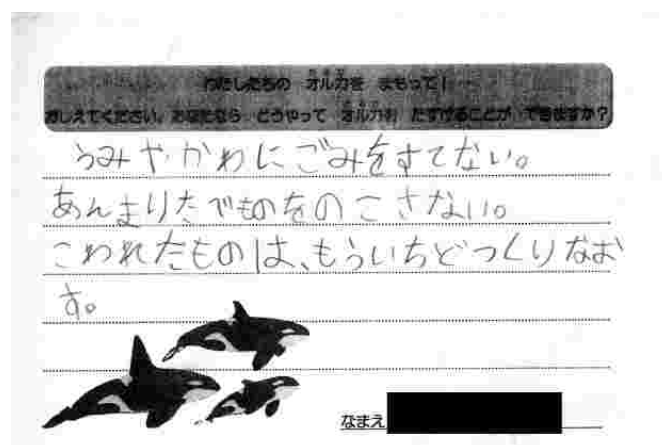 わたしたちの オルカを まもって!
おしえてください。あなたなら どうやって オルカを たすけることが できますか?
うみやかわにごみをすてない。
あんまりたべものをのこさない。
こわれたものは、もういちどつくりなお
す。
なまえ